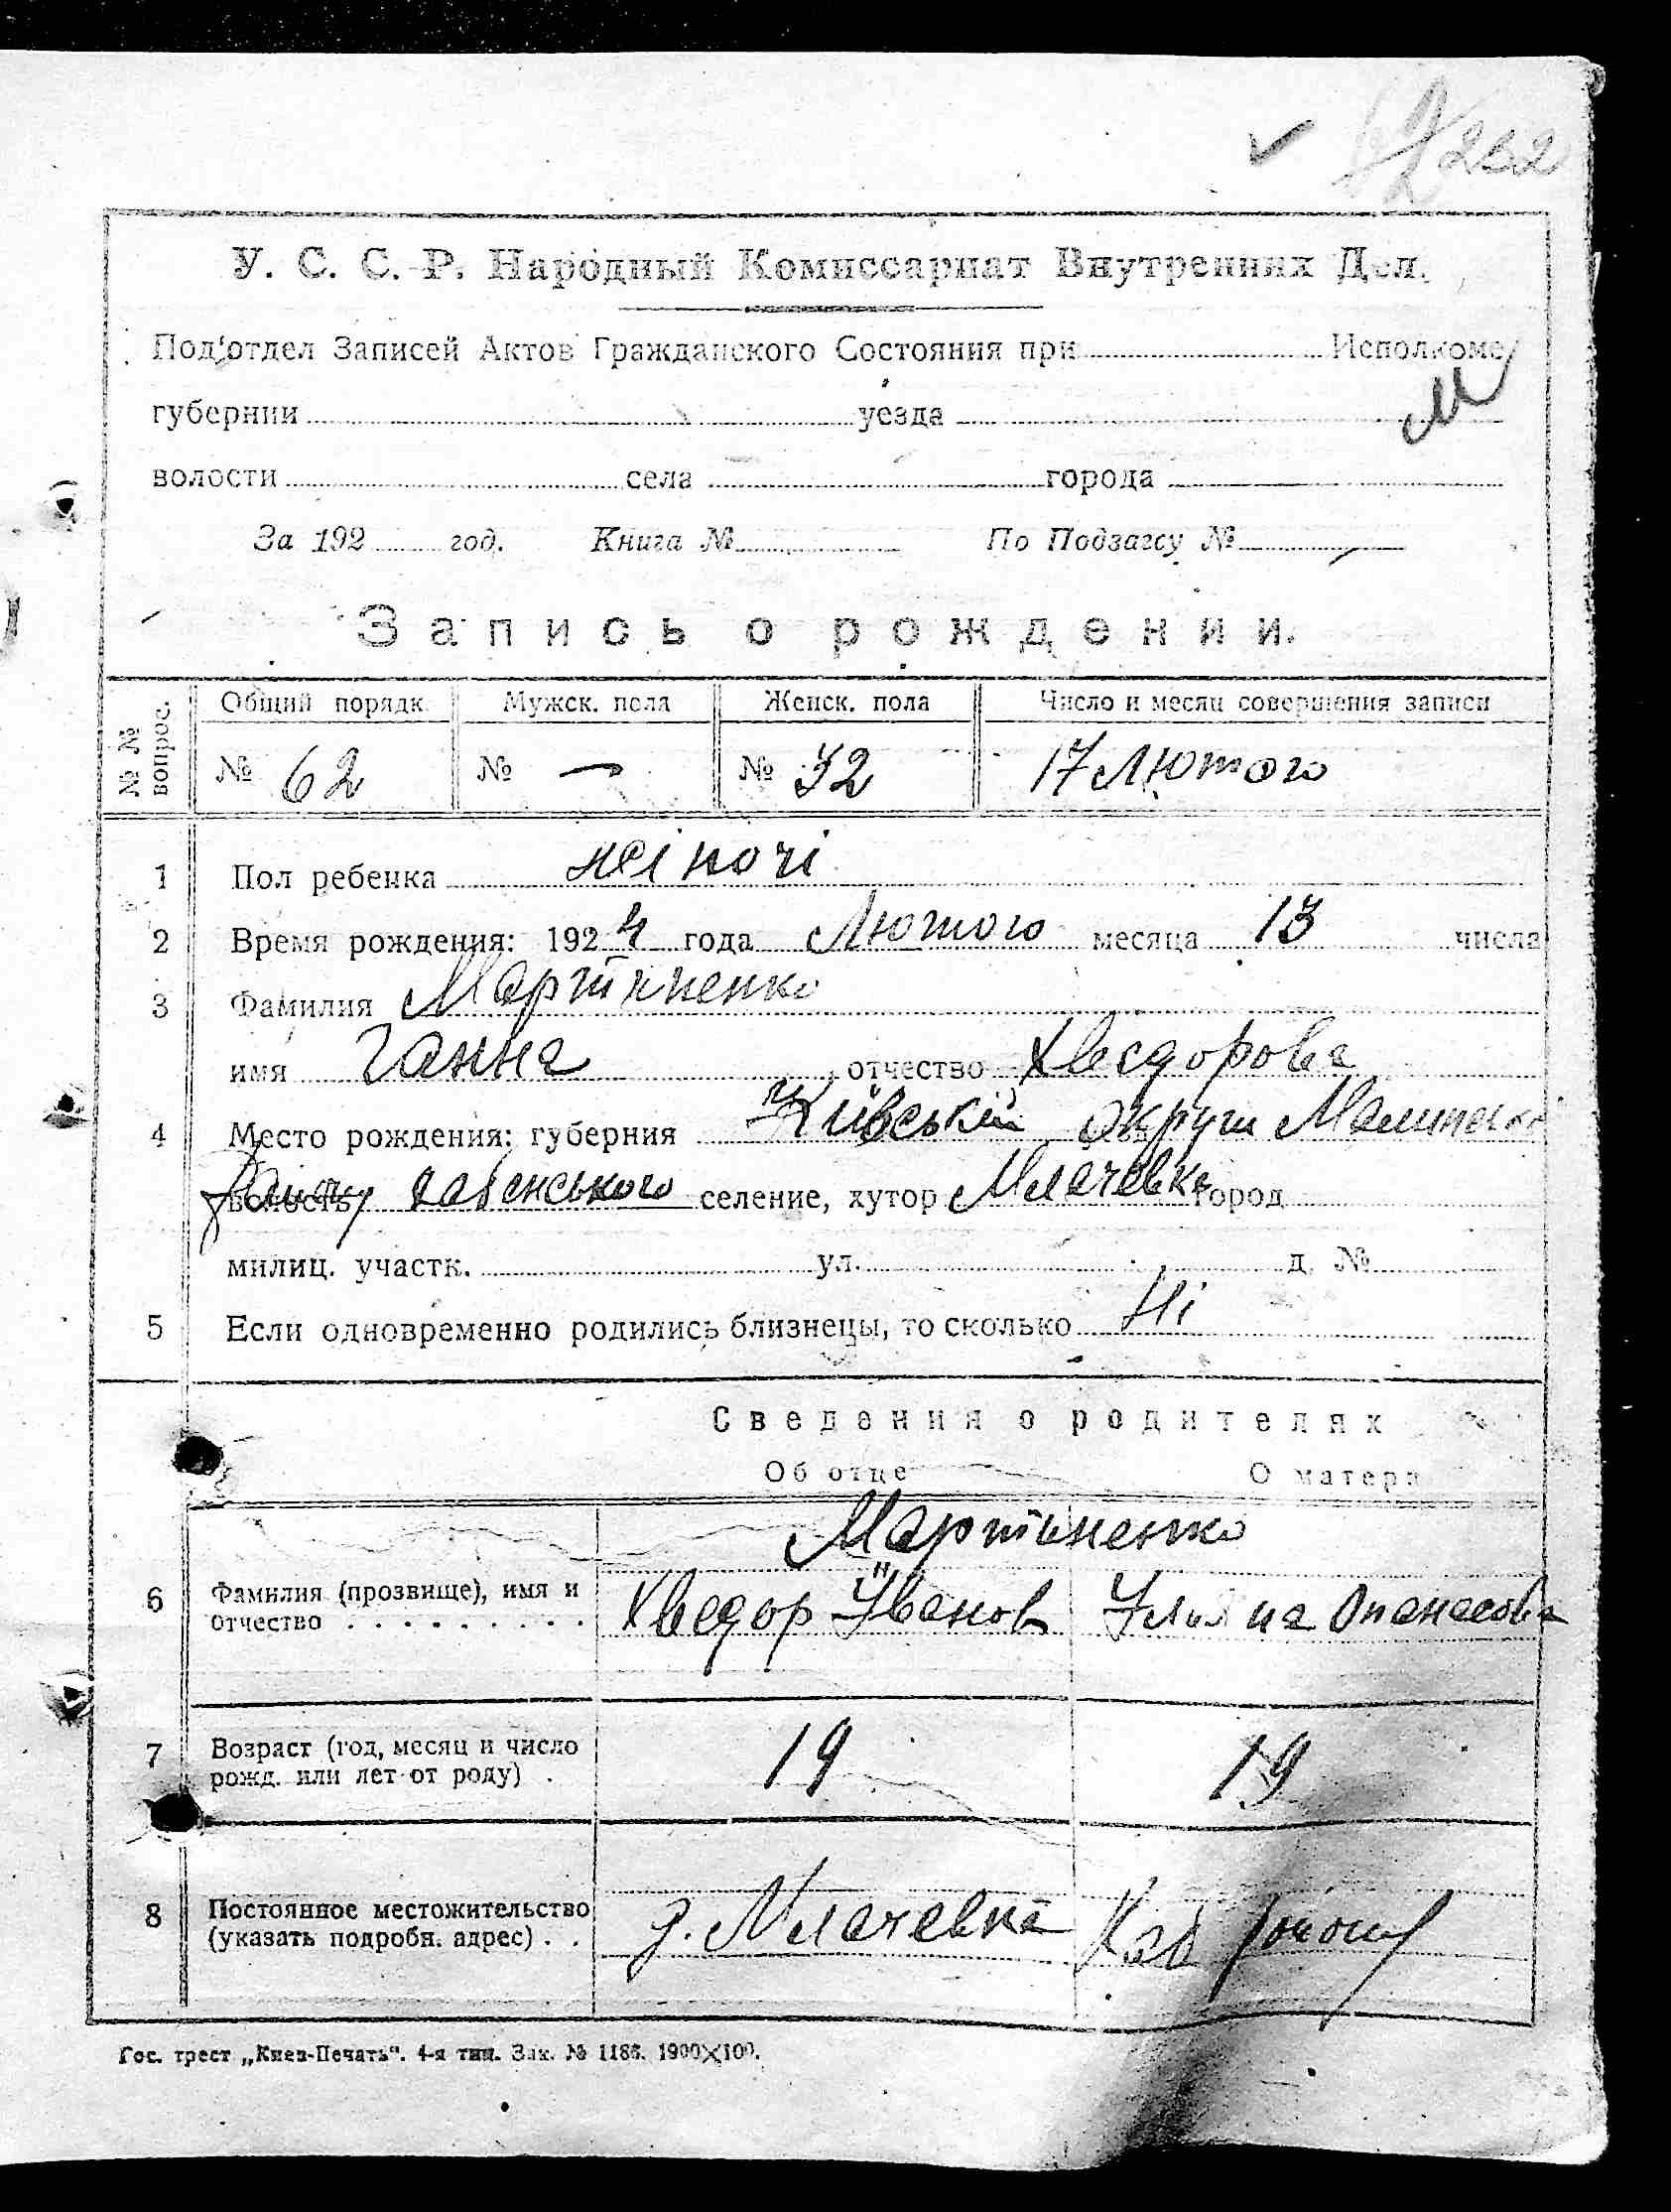 252
У. С. С. Р. Народный Комиссариат Внутренних Дел.
Под'отдел Записей Актов Гражданского Состояния при Исполкоме
губернии уезда
волости села города
За 192 год. Книга № По Подзагсу №
Запись о рождении.
№ № вопрос. Общий порядк. Мужск. пола Женск. пола Число и месяц совершения записи
№ 62 № — № 32 17 Лютого
1 Пол ребенка жіночі
2 Время рождения: 1924 года Лютого месяца 13 числа
3 Фамилия Мартиненко
имя Ганна отчество Хведорова
4 Место рождения: губерния Київськ округи Малинськ
волость району селение, хутор Млачевка город
милиц. участк. ул. д. №
5 Если одновременно родились близнецы, то сколько Ні
Сведения о родителях
Об отце О матери
Мартиненко
6 Фамилия (прозвище), имя и отчество Хведор Іванов Уляна Опанасова
7 Возраст (год, месяц и число рожд. или лет от роду) 19 19
8 Постоянное местожительство (указать подробн. адрес) Млачевка
Гос. трест „Киев-Печать“. 4-я тип. Зак. № 1186. 1900×100.